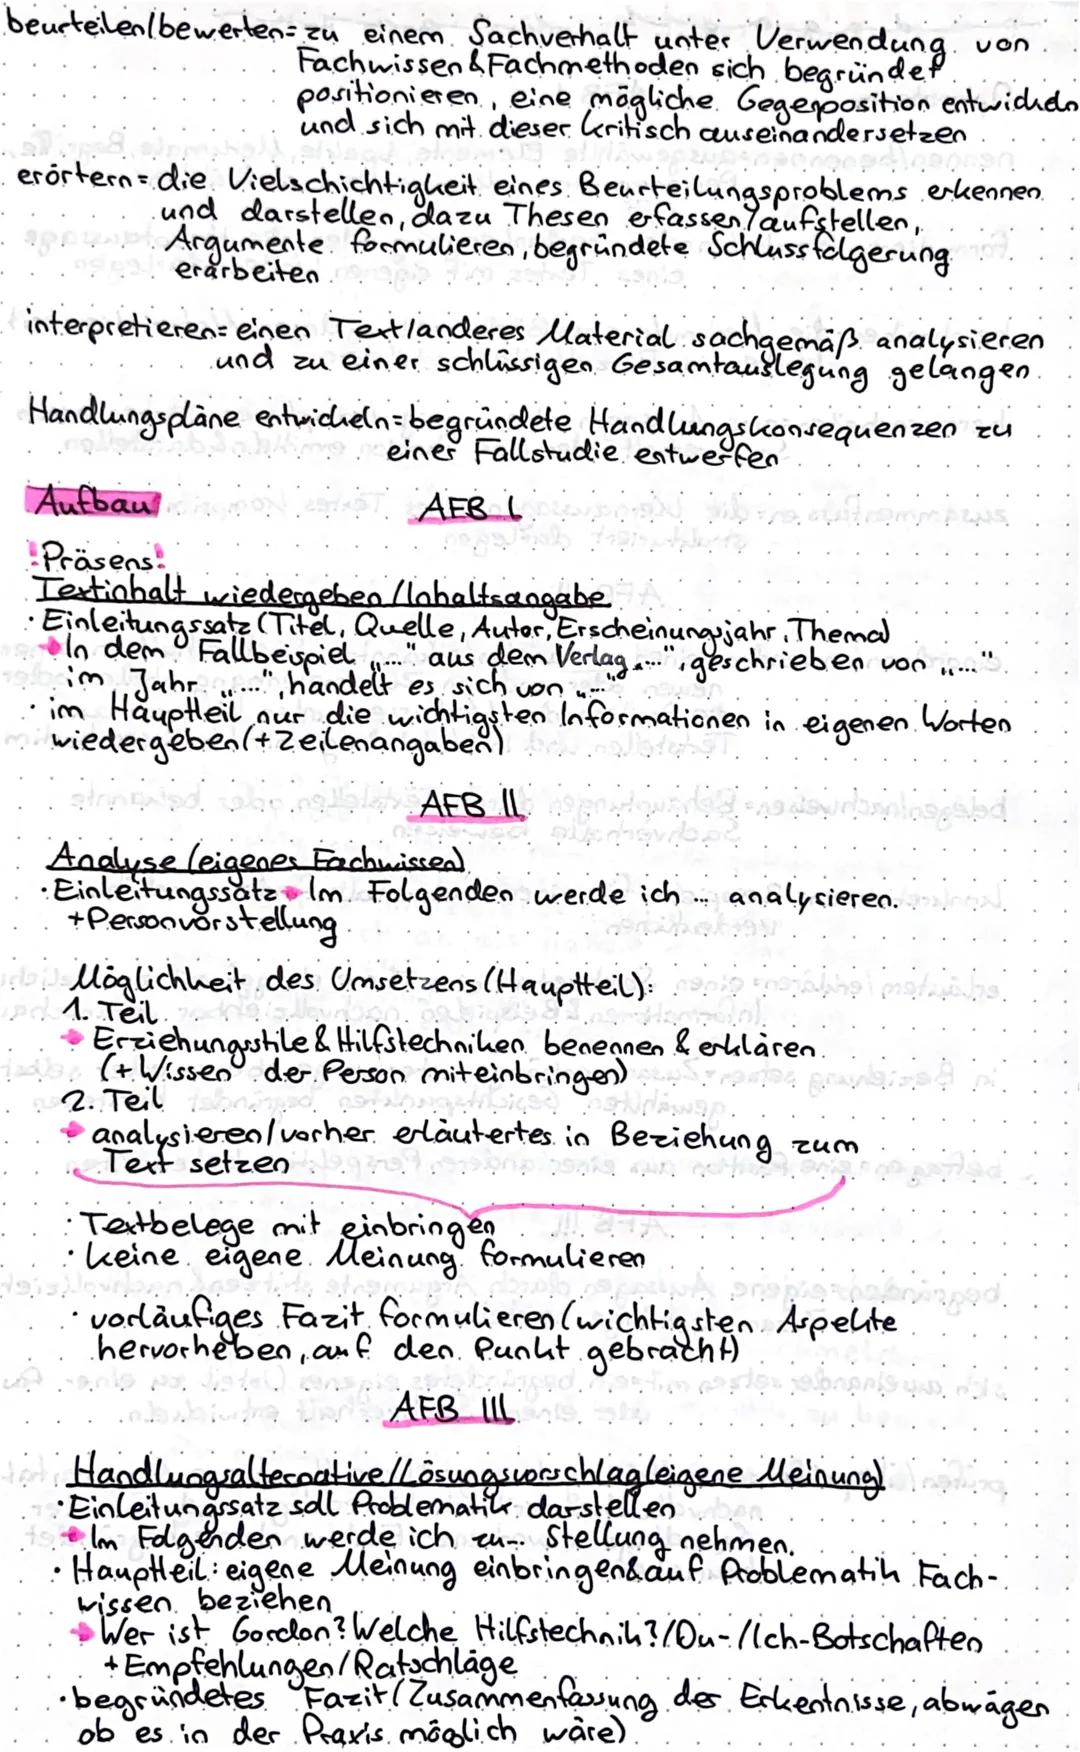 beurteilen/bewerten= zu einem Sachverhalt unter Verwendung von
Fachwissen & Fachmethoden sich begründet
positionieren, eine mögliche Gegenposition entwickeln
und sich mit dieser kritisch auseinandersetzen
erörtern= die Vielschichtigkeit eines Beurteilungsproblems erkennen
und darstellen, dazu Thesen erfassen/aufstellen,
Argumente formulieren, begründete Schlussfolgerung
erarbeiten
interpretieren= einen Text/anderes Material sachgemäß analysieren
und zu einer schlüssigen Gesamtauslegung gelangen
Handlungspläne entwickeln= begründete Handlungskonsequenzen zu
einer Fallstudie entwerfen
Aufbau AFB I
!Präsens!
Textinhalt wiedergeben/Inhaltsangabe
· Einleitungssatz (Titel, Quelle, Autor, Erscheinungsjahr, Thema)
In dem Fallbeispiel „..." aus dem Verlag „...", geschrieben von „..."
im Jahr „..., handelt es sich von „..."
· im Hauptteil nur die wichtigsten Informationen in eigenen Worten
wiedergeben (+Zeilenangaben)
AFB II
Analyse (eigenes Fachwissen)
· Einleitungssatz Im Folgenden werde ich ... analysieren.
+Personvorstellung
Möglichkeit des Umsetzens (Hauptteil):
1. Teil
Erziehungsstile & Hilfstechniken benennen & erklären
(+Wissen der Person miteinbringen)
2. Teil
analysieren/vorher erläutertes in Beziehung zum
Text setzen
· Textbelege mit einbringen
· keine eigene Meinung formulieren
· vorläufiges Fazit formulieren (wichtigsten Aspekte
hervorheben, auf den Punkt gebracht)
AFB III
Handlungsalternative/Lösungsvorschlag (eigene Meinung)
· Einleitungssatz soll Problematik darstellen
Im Folgenden werde ich zu... Stellung nehmen.
· Hauptteil: eigene Meinung einbringen & auf Problematik Fach-
wissen beziehen
Wer ist Gordon? Welche Hilfstechnik?/Du-/Ich-Botschaften
+Empfehlungen/Ratschläge
· begründetes Fazit (Zusammenfassung der Erkentnisse, abwägen
ob es in der Praxis möglich wäre)